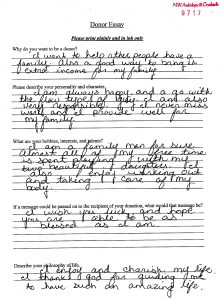 NW Andrology & Cryobank
9717
Donor Essay
Please print plainly and in ink only
Why do you want to be a donor?
I want to help other people have a
family. Also a good way to bring in
extra income for my family
Please describe your personality and character.
I am always happy and a go with
the flow type of guy. I am also
very responsible. I never miss
work and I provide well for
my family.
What are your hobbies, interests, and talents?
I am a family man for sure.
Almost all of my free time
is spent playing with my
two beautiful daughters. I
also enjoy working out
and taking care of my
body.
If a message could be passed on to the recipient of your donation, what would that message be?
I wish you luck and hope
you are able to be as
blessed as I am.
Describe your philosophy of life.
I enjoy and charish my life.
I thank god for giving me
to have such an amazing life.